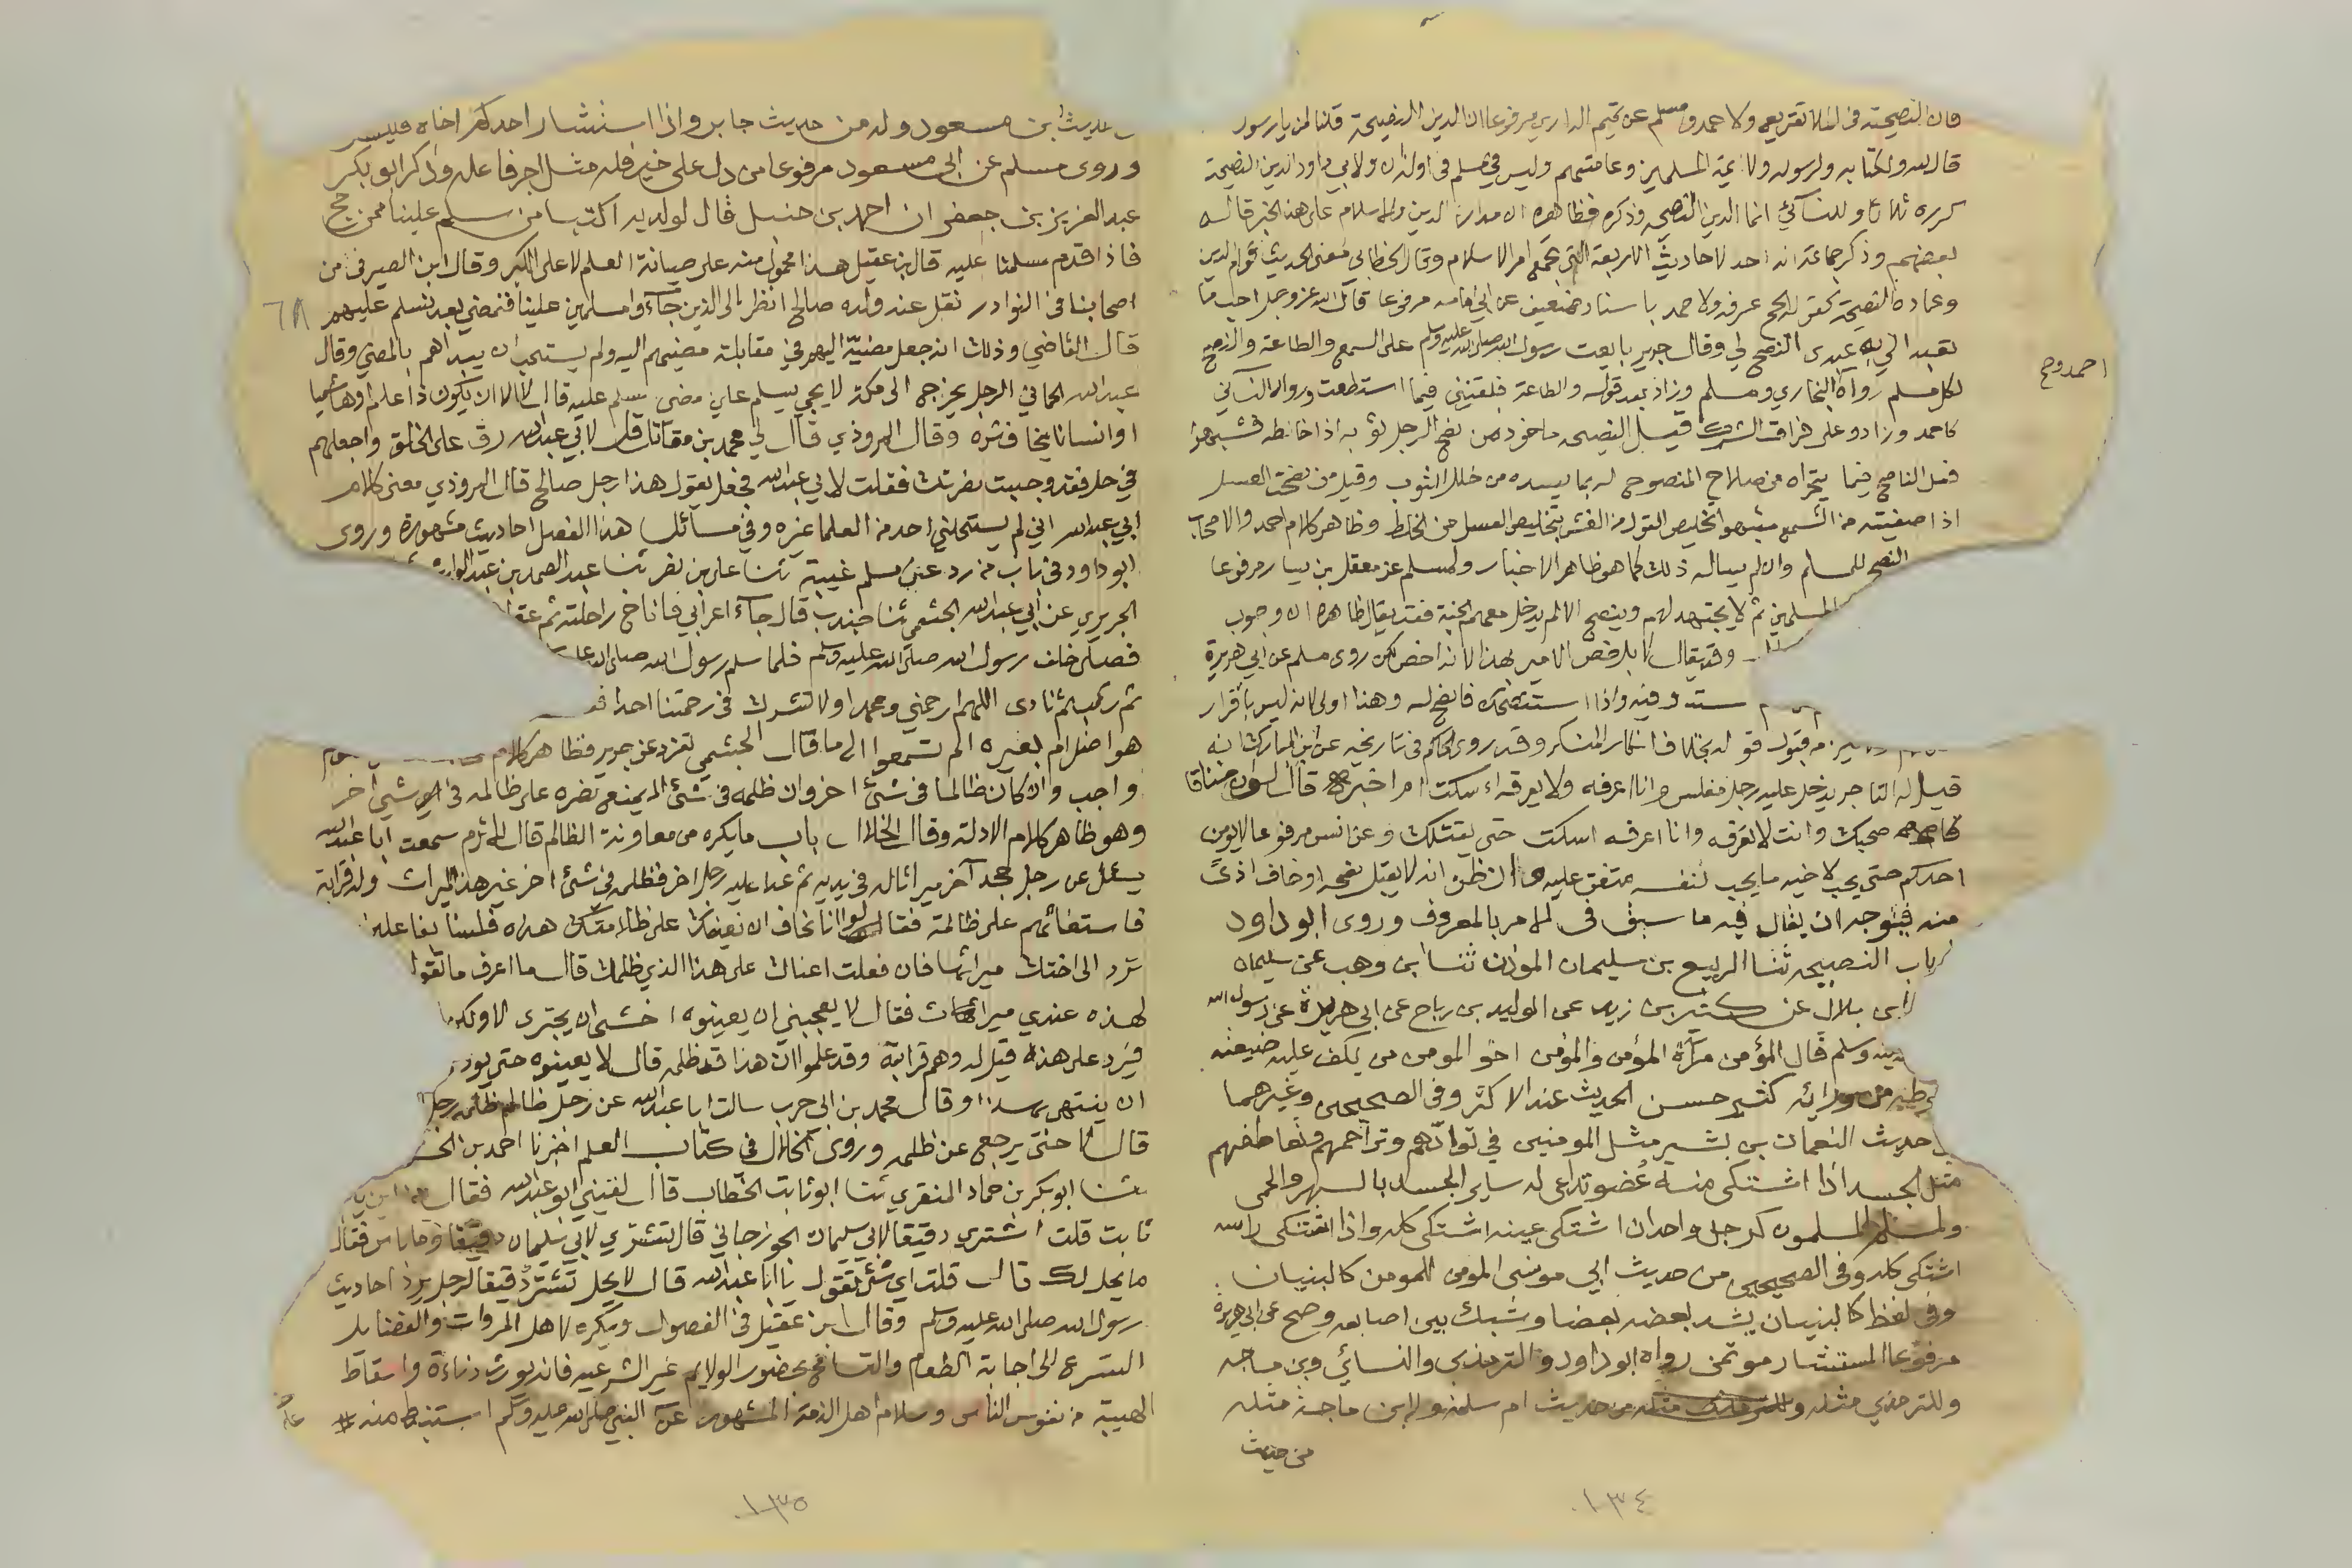 فان النصيحة في الملا تقريع ولاحمد ومسلم عن تميم الداري مرفوعا ان الدين النصيحة قلنا لمن يا رسول
قال لله ولكتابه ولرسوله ولائمة المسلمين وعامتهم وليس في مسلم في اوله ان ولابي داود ان الدين النصيحة
كرره ثلاثا وللنسائي انما الدين النصيحة وذكره فظاهره ان مدار الدين والاسلام على هذا الخبر قاله
بعضهم وذكر جماعة انه احد الاحاديث الاربعة التي تجمع امر الاسلام وقال الخطابي معنى الحديث قوام الدين
وعماده النصيحة كقوله الحج عرفة ولاحمد باسناد ضعيف عن ابي امامه مرفوعا قال الله عز وجل احب ما
تعبد الي به عبدي النصح لي وقال جرير بايعت رسول الله صلى الله عليه وسلم على السمع والطاعة والنصح
لكل مسلم رواه البخاري ومسلم وزاد بعد قوله والطاعة فلقنني فيما استطعت ورواه النسائي
احمد وصح
كاحمد وزاد وعلى فراق الشرك قيل النصيحة ماخوذ من نصح الرجل ثوبه اذا خاطه فشبهوا
فعل الناصح فيما يتحراه من صلاح المنصوح له بما يسده من خلل الثوب وقيل من نصحت العسل
اذا صفيته من الشمع شبهوا تخليص القول من الغش بتخليص العسل من الخلط وظاهر كلام احمد والاصحاب
النصح للمسلم وان لم يساله ذلك كما هو ظاهر الاخبار ولمسلم عن معقل بن يسار مرفوعا
المسلمين ثم لا يجتهد لهم وينصح الا لم يدخل معهم الجنة فقد يقال ظاهره ان وجوب
وقد يقال لا بل خص الامير بهذا لانه اخص لكن روى مسلم عن ابي هريرة
ست وفيه واذا استنصحك فانصح له وهذا اولى لانه ليس باقرار
قبول قوله بخلاف انكار المنكر وقد روى الحاكم في تاريخه عن ابن المبارك انه
قيل له التاجر يدخل عليه رجل مفلس وانا اعرفه ولا يعرفه اسكت ام اخبره قال لو ان خناقا
صحبك وانت لا تعرفه وانا اعرفه اسكت حتى يقتلك وعن انس مرفوعا لا يومن
احدكم حتى يحب لاخيه ما يحب لنفسه متفق عليه وان ظن انه لا يقبل نصحه او خاف اذى
منه فيتوجه ان يقال فيه ما سبق في الامر بالمعروف وروى ابو داود
باب النصيحة ثنا الربيع بن سليمان الموذن ثنا ابن وهب عن سليمان
ابن بلال عن كثير بن زيد عن الوليد بن رباح عن ابي هريرة عن رسول الله
عليه وسلم قال المؤمن مرآة المؤمن والمؤمن اخو المومن من يكف عليه ضيعته
كثير حسن الحديث عند الاكثر وفي الصحيحين وغيرهما
حديث النعمان بن بشير مثل المومنين في توادهم وتراحمهم وتعاطفهم
مثل الجسد اذا اشتكى منه عضو تداعى له ساير الجسد بالسهر والحمى
ولمسلم المسلمون كرجل واحد ان اشتكى عينه اشتكى كله واذا اشتكى راسه
اشتكى كله وفي الصحيحين من حديث ابي موسى المومن للمومن كالبنيان
وفي لفظ كالبنيان يشد بعضه بعضا وشبك بين اصابعه وصح عن ابي هريرة
مرفوعا المستشار موتمن رواه ابو داود والترمذي والنسائي وبن ماجه
وللترمذي مثله من حديث ام سلمة ولابن ماجة مثله
من حديث
١٣٤
حديث ابن مسعود وله من حديث جابر واذا استشار احدكم اخاه فليشر
وروى مسلم عن ابي مسعود مرفوعا من دل على خير فله مثل اجر فاعله وذكر ابو بكر
عبد العزيز بن جعفر ان احمد بن حنبل قال لولديه اكتبا من سلم علينا ممن حج
فاذا قدم سلمنا عليه قال بن عقيل هذا محمول منه على صيانة العلم لا على الكبر وقال ابن الصيرفي من
اصحابنا في النوادر نقل عنه ولده صالح انظر الى الذين جآءوا مسلمين علينا فنمضي بعد نسلم عليهم
٦٨
قال القاضي وذلك انه جعل مضيه اليهم في مقابلة مضيهم اليه ولم يستحب ان يبداهم بالمضي وقال
عبد الله الرجل يخرج الى مكة لا يجي يسلم علي مضى يسلم عليه قال لا الا ان يكون ذا علم او هاشميا
او انسانا يخاف شره وقال المروذي قال لي محمد بن مقاتل قل لابي عبد الله رق على الخلق واجعلهم
في حل فقد وجبت نصرتك فقلت لابي عبد الله فجعل يقول هذا رجل صالح قال المروذي معنى كلام
ابي عبد الله اني لم يستحلني احد من العلما غيره وفي مسائل هذا الفصل احاديث مشهورة وروى
ابو داود في باب من رد عن مسلم غيبة ثنا علي بن نصر ثنا عبد الصمد بن عبد الوارث
الجريري عن ابي عبد الله الجشمي ثنا جندب قال جآء اعرابي فاناخ راحلته ثم
فصلى خلف رسول الله صلى الله عليه وسلم فلما سلم رسول الله صلى الله
ثم ركب ثم نادى اللهم ارحمني ومحمدا ولا تشرك في رحمتنا احدا
هو اضل ام بعيره الم تسمعوا الى ما قال الجشمي تفرد عنه جرير فظاهر كلام
واجب وان كان ظالما في شئ اخر وان ظلمه في شئ لا يمنع نصره على ظالمه في شئ اخر
وهو ظاهر كلام الادلة وقال الخلال باب ما يكره من معاونة الظالم قال الاثرم سمعت ابا عبد الله
يسئل عن رجل جحد آخر ميراثا له في يديه ثم عدا عليه رجل اخر فظلمه في شئ اخر غير هذا الميراث وله قرابة
فاستغاثهم على ظالمه فقالوا انا نخاف ان نعينك على ظلامتك هذه فلسنا بفاعلين
ترد الى اختك ميراثها فان فعلت اعناك على هذا الذي ظلمك قال ما اعرف ما تقول
لهذه عندي ميراث فقال لا يعجبني ان يعينوه اخشى ان يجترى لا ولكن
فيرد على هذه قيل له وهم قرابة وقد علموا ان هذا قد ظلمه قال لا يعينوه حتى يودي
ان ينتهي بهذا وقال محمد بن ابي حرب سالت ابا عبد الله عن رجل ظالم ظلمه رجل
قال لا حتى يرجع عن ظلمه وروى الخلال في كتاب العلم اخبرنا احمد بن
ثنا ابو بكر بن حماد المنقري ثنا ابو ثابت الخطاب قال لقيني ابو عبد الله فقال
ثابت قلت اشتري دقيقا لابي سليمان الجوزجاني قال تشتري لابي سليمان دقيقا فقال
ما يحل لك قال قلت اي شئ تقول يا ابا عبد الله قال لا يحل تشتري دقيقا لرجل يرد احاديث
رسول الله صلى الله عليه وسلم وقال ابن عقيل في الفصول ويكره لاهل المروات والفضايل
التسرع الى اجابة الطعام والتسامح بحضور الولايم غير الشرعية فانه يورث دناءة واسقاط
الهيبة من نفوس الناس وسلام اهل الذمة المشهور عن النبي صلى الله عليه وسلم استنبط منه
١٣٥